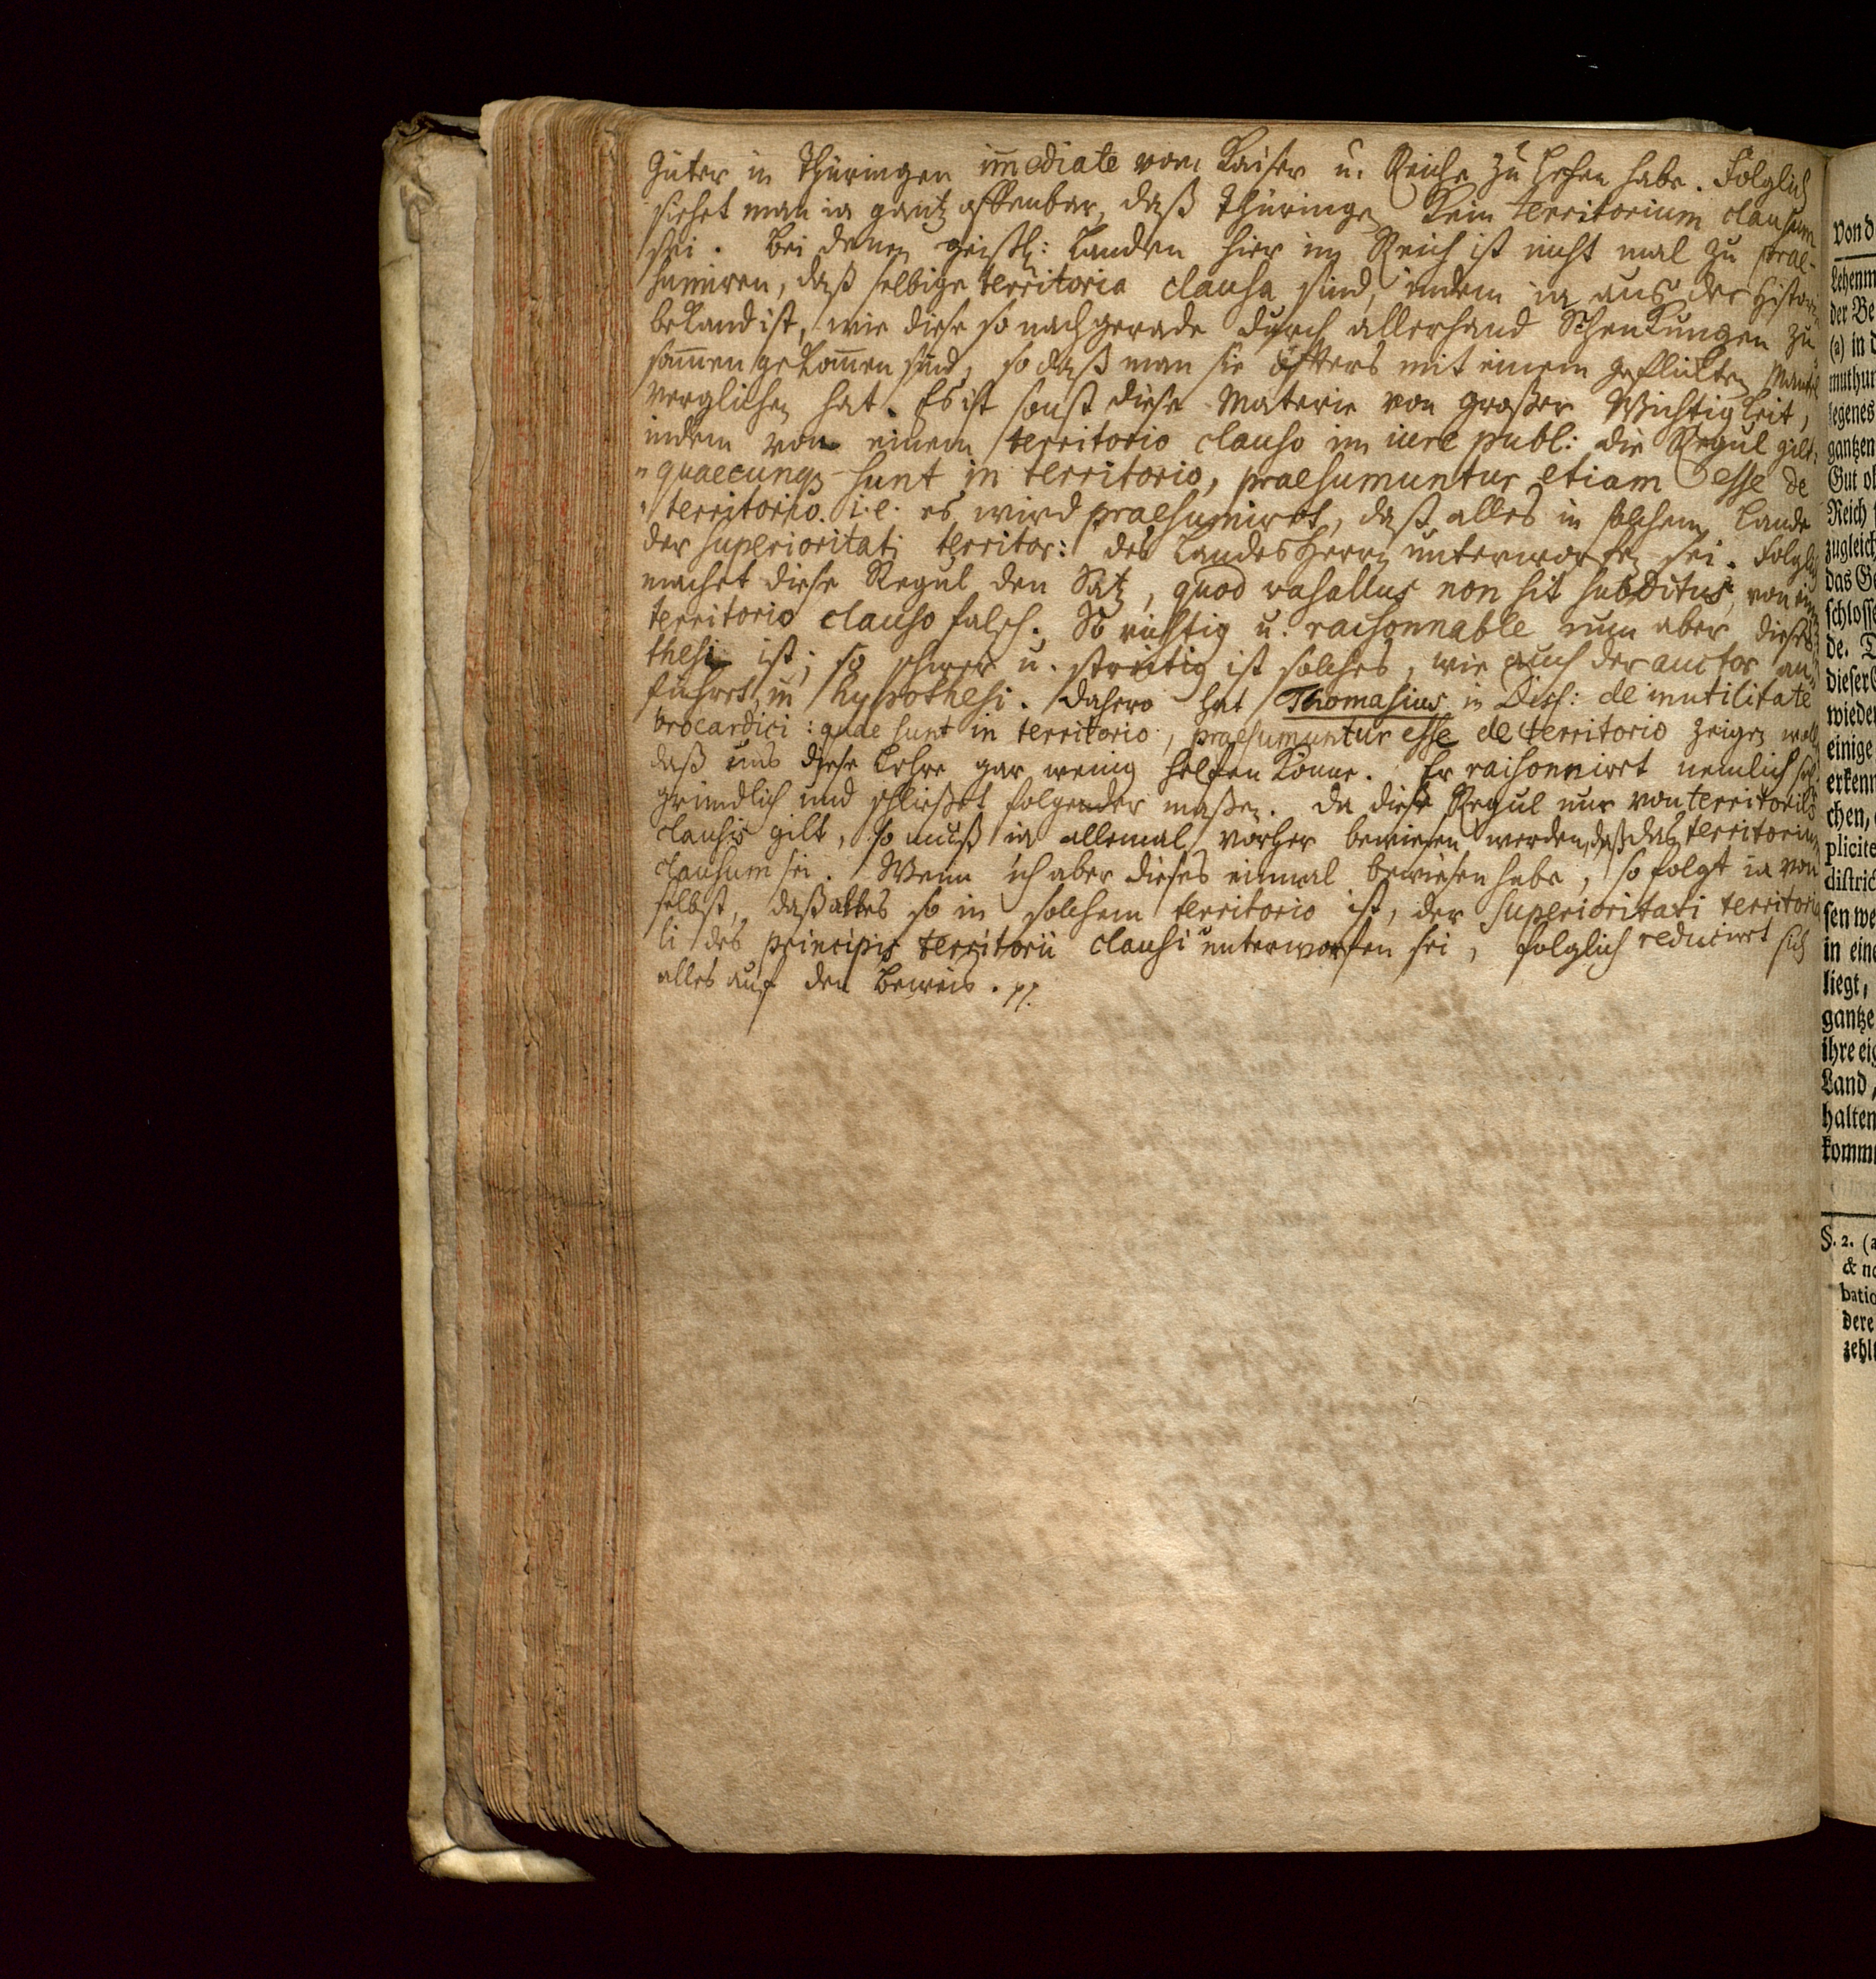 Güter in Thüringen im̄ediate vom Kaiser u. Reiche zu Lehen habe. Folglich
siehet man ia gantz offenbar, daß Thüringen kein territorium clausum
sei. Bei denen geistl: Landen hier im Reich ist nicht mal zu prae-
sumiren, daß selbige territoria clausa sind, indem ia aus der Histori
bekand ist, wie diese so nachgerade durch allerhand Schenkungen zu
sam̄en gekom̄en sind, so daß man sie öffters mit einem geflickten Mantel
verglichen hat. Es ist sonst diese Materie von großer Wichtigkeit,
indem von einem territorio clauso im iure publ: die Regul gilt:
"quaecunqꝫ sunt in territorio, praesumuntur etiam esse de
"territorio. i.e. es wird praesumiret, daß alles in solchem Lande
der superioritati territor: des Landesherrn unterworfen sei. Folglich
machet diese Regul den Satz, quod vasallus non sit subditus, von
territorio clauso falsch. So richtig u. raisonnable nun aber dieses
thesi ist; so schwer u. streitig ist solches, wie auch der auctor an-
führet, in hypothesi. Dahero hat Thomasius in Diss: de inutilitate
brocardici: quae sunt in territorio, praesumuntur esse de territorio zeigen
daß uns diese Lehre gar wenig helfen könne. Er raisonniret nemlich
gründlich und schließet folgender maßen. Da diese Regul nur von territoriis
clausis gilt, so muß ia allemal vorher bewiesen werden, daß das territorium
clausum sei. Wenn ich aber dieses einmal bewiesen habe, so folgt ia von
selbst, daß alles so in solchem territorio ist, der superioritati territoria
li des principis territorii clausi unterworfen sei, folglich reduciret sich
alles auf den Beweis. pp.
Von d
Lehenm
der Be
(a) in d
muthun
legenes
gantzen
Gut ob
Reich
zugleich
das Ge
schlosse
de. T
dieser
wieder
einige
erkenn
chen,
plicite
distric
sen we
in eine
liegt,
gantze
ihre eig
Land,
halten
komm
§. 2. (a
& no
batio
dere
zehl